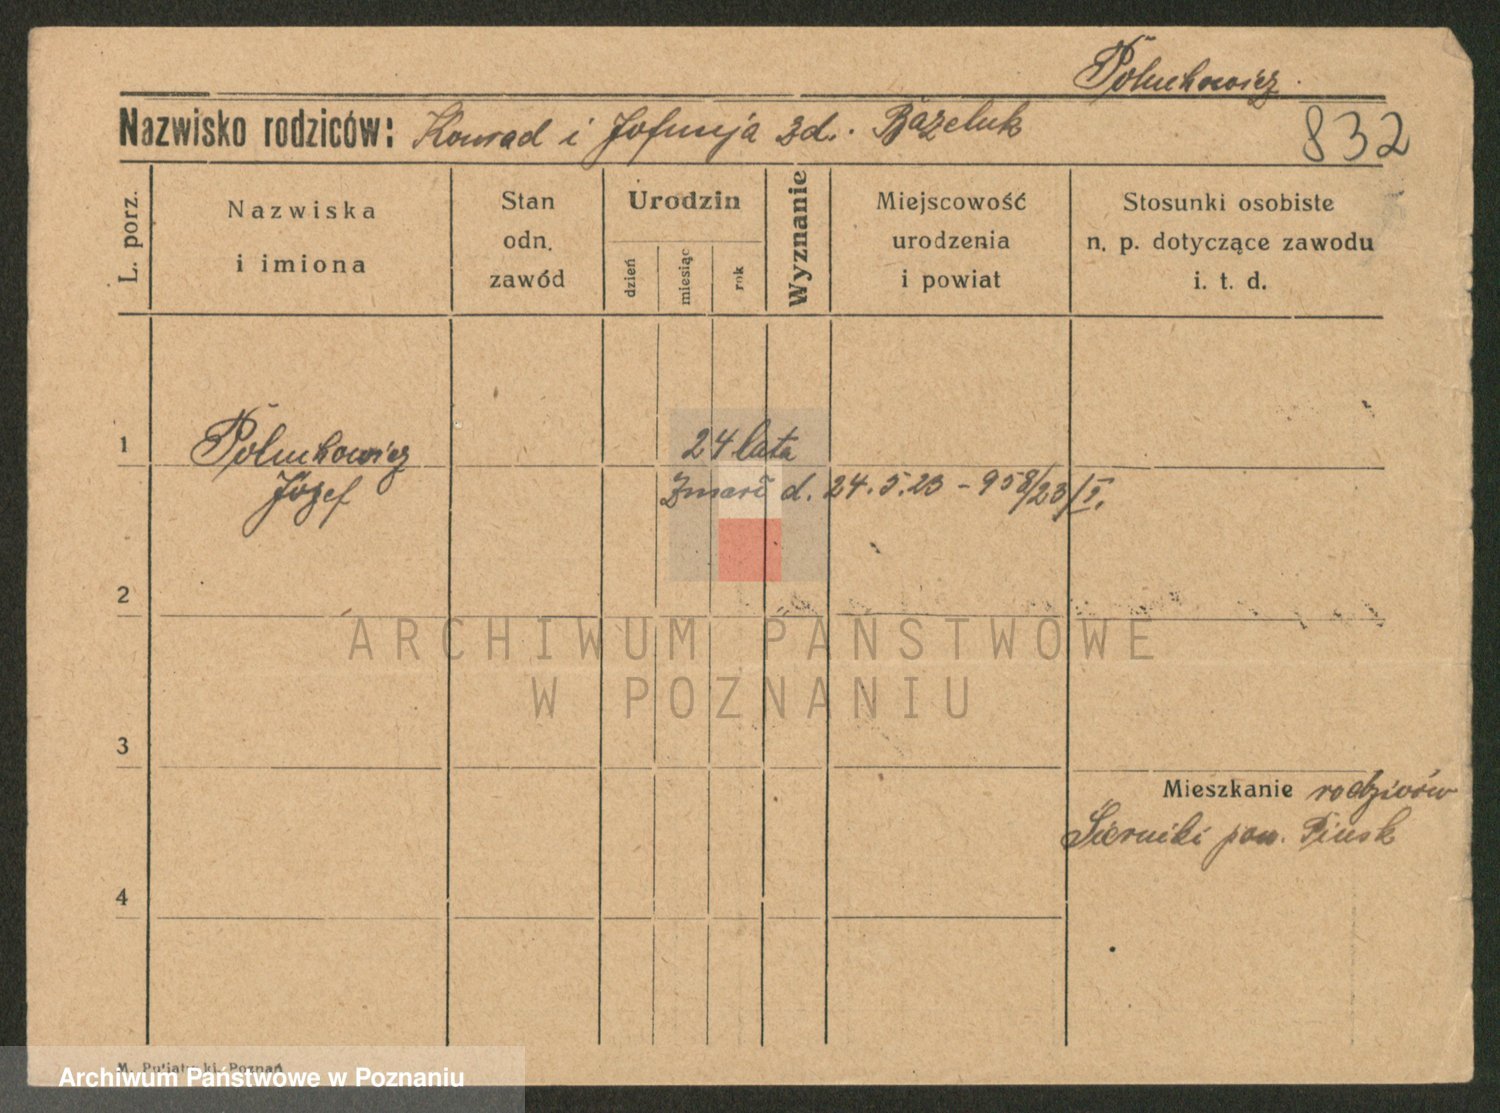 Połuchowicz.
Nazwisko rodziców: Konrad i Jofimja zd. Bazeluk
832
L. porz.
Nazwiska
i imiona
Stan
odn.
zawód
Urodzin
dzień
miesiąc
rok
Wyznanie
Miejscowość
urodzenia
i powiat
Stosunki osobiste
n. p. dotyczące zawodu
i. t. d.
1
Połuchowicz
Józef
24 lata
Zmarł d. 24.5.23 - 958/23/I.
2
ARCHIWUM PAŃSTWOWE
W POZNANIU
3
Mieszkanie rodziców
Sierniki pow. Pinsk
4
Poznań
Archiwum Państwowe w Poznaniu